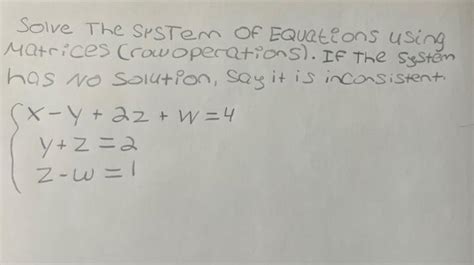 Solve The SYSTem OF EQuations using
Matrices (row operations). IF The System
has NO Solution, say it is inconsistent.
x - y + 2z + w = 4
y + z = 2
z - w = 1